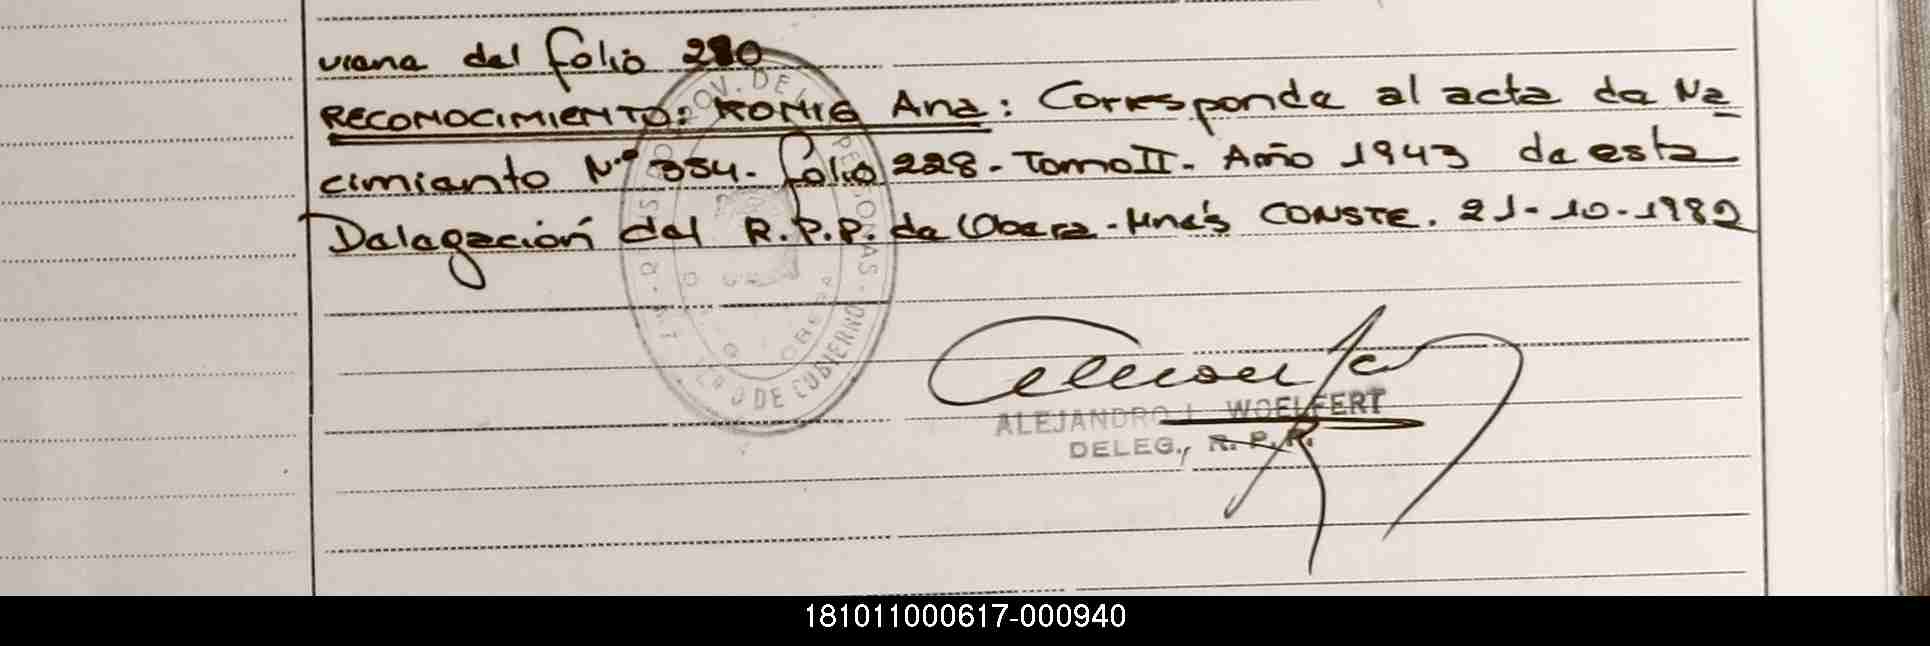 viene del folio 280
RECONOCIMIENTO: KONIG Ana: Corresponde al acta de Na
cimiento Nº 354. folio 228. Tomo II. Año 1943 de esta
Delegación del R.P.P. de Obera - Mnes CONSTE. 21-10-1982
PROV. DE
PERSONAS
DE GOBIERNO
OBERA
ALEJANDRO L. WOELFERT
DELEG., R. P. P.
181011000617-000940